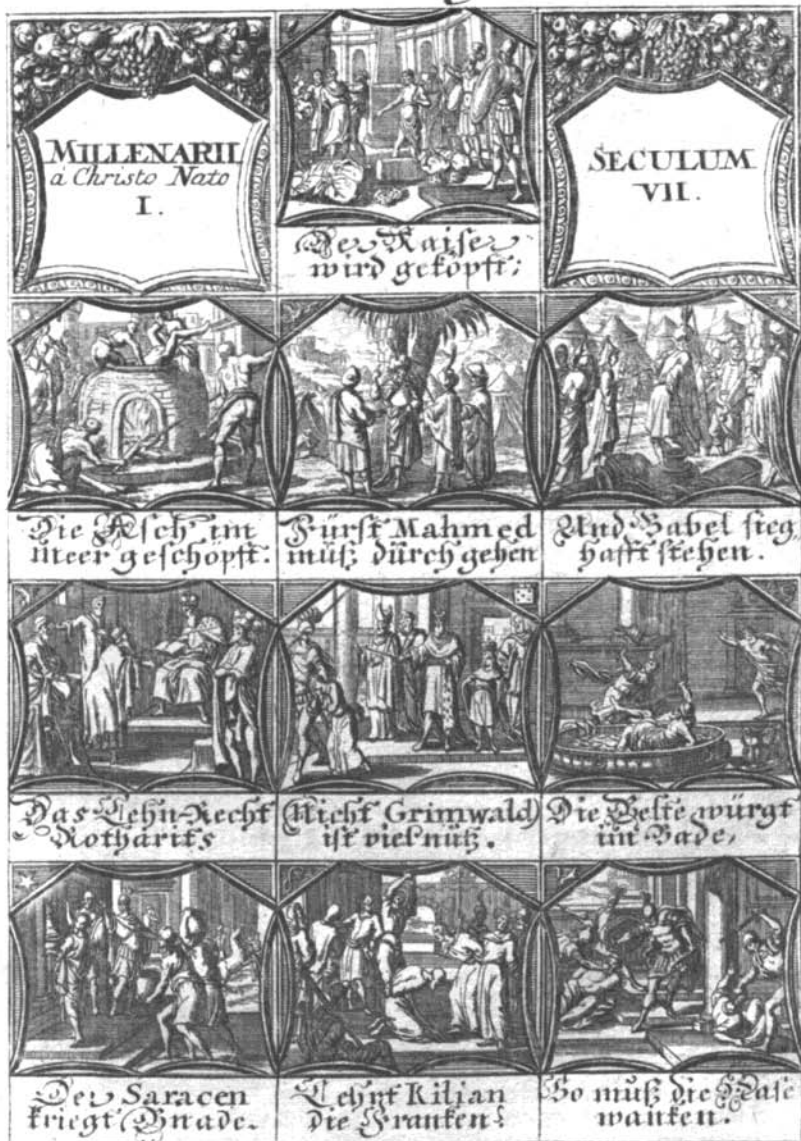 MILLENARII
á Christo Nato
I.
Der Kaiser
wird geköpft;
SECULUM
VII.
Die Asch im
Meer geschöpft.
Fürst Mahmed
müß dürch gehen
Und Babel sieg,
hafft stehen.
Das Lehn-Recht
Rotharits
(Nicht Grimwald)
ist viel nütz.
Die würgt
im Bade,
Der Saracen
kriegt Gnade.
Lehrt Kilian
die Francken:
So muß die Nase
wancken.